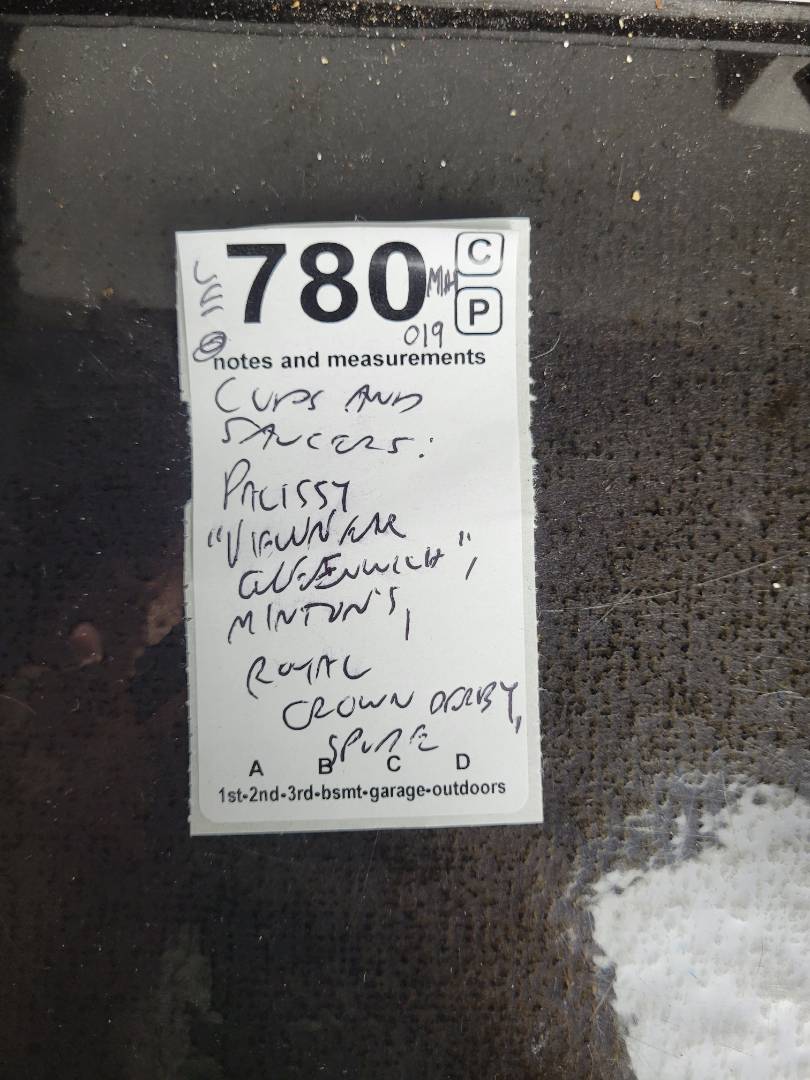 780
C
P
019
notes and measurements
CUPS AND
SAUCERS:
PALISSY
"VIEW NEAR
GREENWICH",
MINTON'S,
ROYAL
CROWN DERBY,
SPODE
A B C D
1st-2nd-3rd-bsmt-garage-outdoors